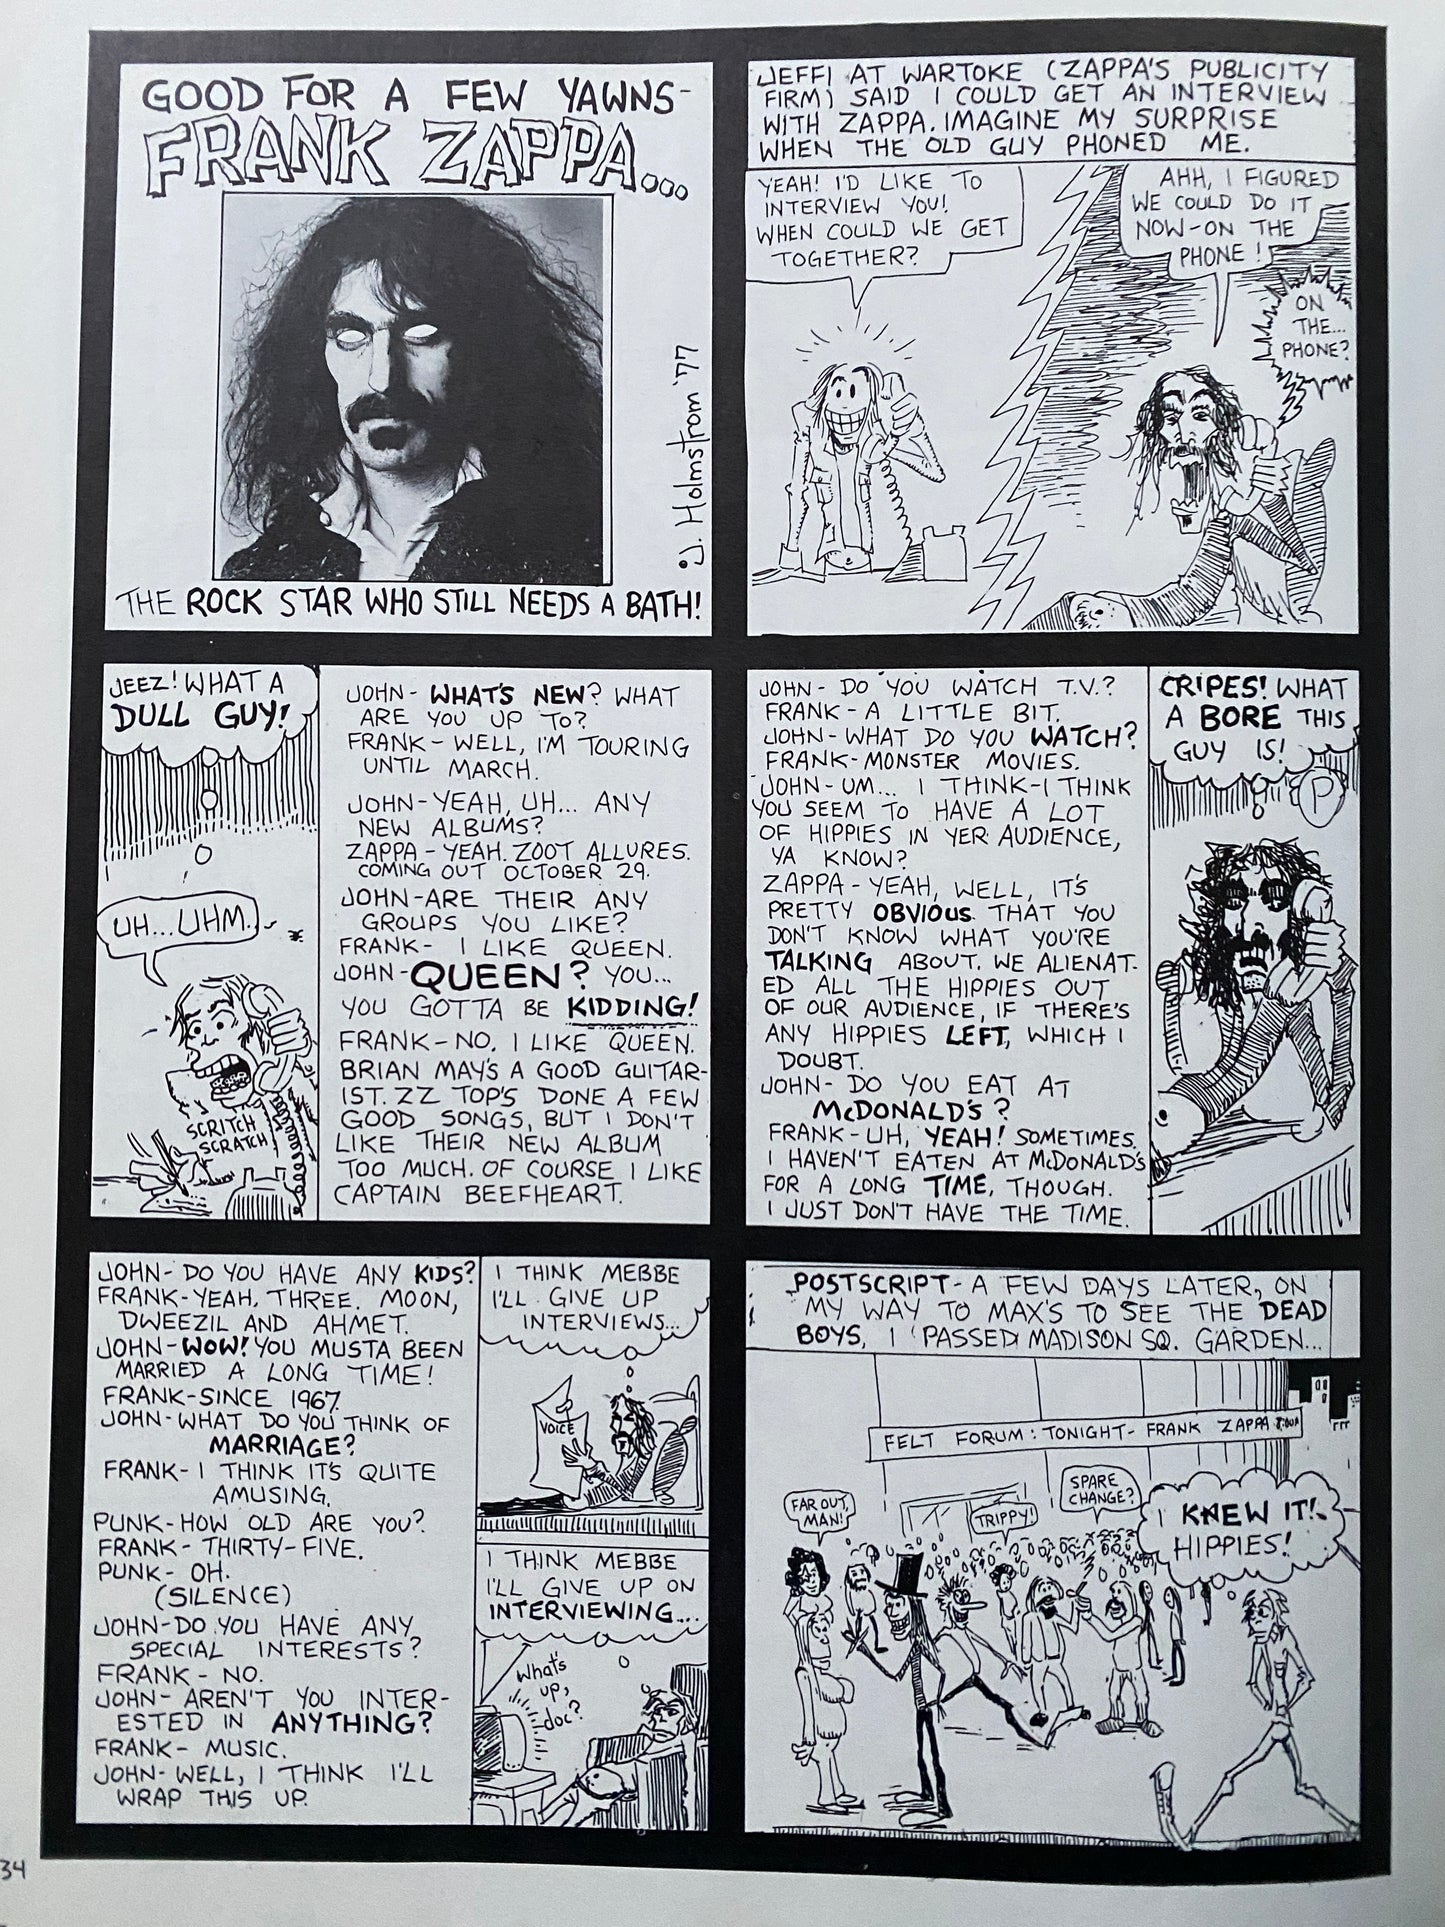 GOOD FOR A FEW YAWNS-
FRANK ZAPPA...
J. Holmstrom '77
THE ROCK STAR WHO STILL NEEDS A BATH!
JEFFI AT WARTOKE (ZAPPA'S PUBLICITY
FIRM) SAID I COULD GET AN INTERVIEW
WITH ZAPPA. IMAGINE MY SURPRISE
WHEN THE OLD GUY PHONED ME.
YEAH! I'D LIKE TO
INTERVIEW YOU!
WHEN COULD WE GET
TOGETHER?
AHH, I FIGURED
WE COULD DO IT
NOW-ON THE
PHONE!
ON
THE...
PHONE?
JEEZ! WHAT A
DULL GUY!
UH...UHM.
SCRITCH
SCRATCH
JOHN- WHAT'S NEW? WHAT
ARE YOU UP TO?
FRANK- WELL, I'M TOURING
UNTIL MARCH.
JOHN-YEAH, UH... ANY
NEW ALBUMS?
ZAPPA-YEAH. ZOOT ALLURES.
COMING OUT OCTOBER 29.
JOHN-ARE THEIR ANY
GROUPS YOU LIKE?
FRANK- I LIKE QUEEN.
JOHN-QUEEN? YOU...
YOU GOTTA BE KIDDING!
FRANK-NO. I LIKE QUEEN.
BRIAN MAY'S A GOOD GUITAR-
IST. ZZ TOP'S DONE A FEW
GOOD SONGS, BUT I DON'T
LIKE THEIR NEW ALBUM
TOO MUCH. OF COURSE I LIKE
CAPTAIN BEEFHEART.
JOHN- DO YOU WATCH T.V.?
FRANK-A LITTLE BIT.
JOHN-WHAT DO YOU WATCH?
FRANK-MONSTER MOVIES.
JOHN-UM... I THINK-I THINK
YOU SEEM TO HAVE A LOT
OF HIPPIES IN YER AUDIENCE,
YA KNOW?
ZAPPA-YEAH, WELL, IT'S
PRETTY OBVIOUS THAT YOU
DON'T KNOW WHAT YOU'RE
TALKING ABOUT. WE ALIENAT-
ED ALL THE HIPPIES OUT
OF OUR AUDIENCE, IF THERE'S
ANY HIPPIES LEFT, WHICH I
DOUBT.
JOHN- DO YOU EAT AT
McDONALD'S?
FRANK-UH, YEAH! SOMETIMES.
I HAVEN'T EATEN AT McDONALD'S
FOR A LONG TIME, THOUGH.
I JUST DON'T HAVE THE TIME.
CRIPES! WHAT
A BORE THIS
GUY IS!
P
JOHN- DO YOU HAVE ANY KIDS?
FRANK-YEAH. THREE. MOON,
DWEEZIL AND AHMET.
JOHN-WOW! YOU MUSTA BEEN
MARRIED A LONG TIME!
FRANK-SINCE 1967.
JOHN-WHAT DO YOU THINK OF
MARRIAGE?
FRANK- I THINK IT'S QUITE
AMUSING.
PUNK-HOW OLD ARE YOU?
FRANK- THIRTY-FIVE.
PUNK- OH.
(SILENCE)
JOHN-DO YOU HAVE ANY
SPECIAL INTERESTS?
FRANK- NO.
JOHN- AREN'T YOU INTER-
ESTED IN ANYTHING?
FRANK- MUSIC.
JOHN-WELL, I THINK I'LL
WRAP THIS UP.
I THINK MEBBE
I'LL GIVE UP
INTERVIEWS...
VOICE
I THINK MEBBE
I'LL GIVE UP ON
INTERVIEWING....
What's
up,
doc?
POSTSCRIPT- A FEW DAYS LATER, ON
MY WAY TO MAX'S TO SEE THE DEAD
BOYS, I PASSED MADISON SQ. GARDEN...
FELT FORUM: TONIGHT- FRANK ZAPPA
FAR OUT,
MAN!
TRIPPY!
SPARE
CHANGE?
I KNEW IT!
HIPPIES!
34